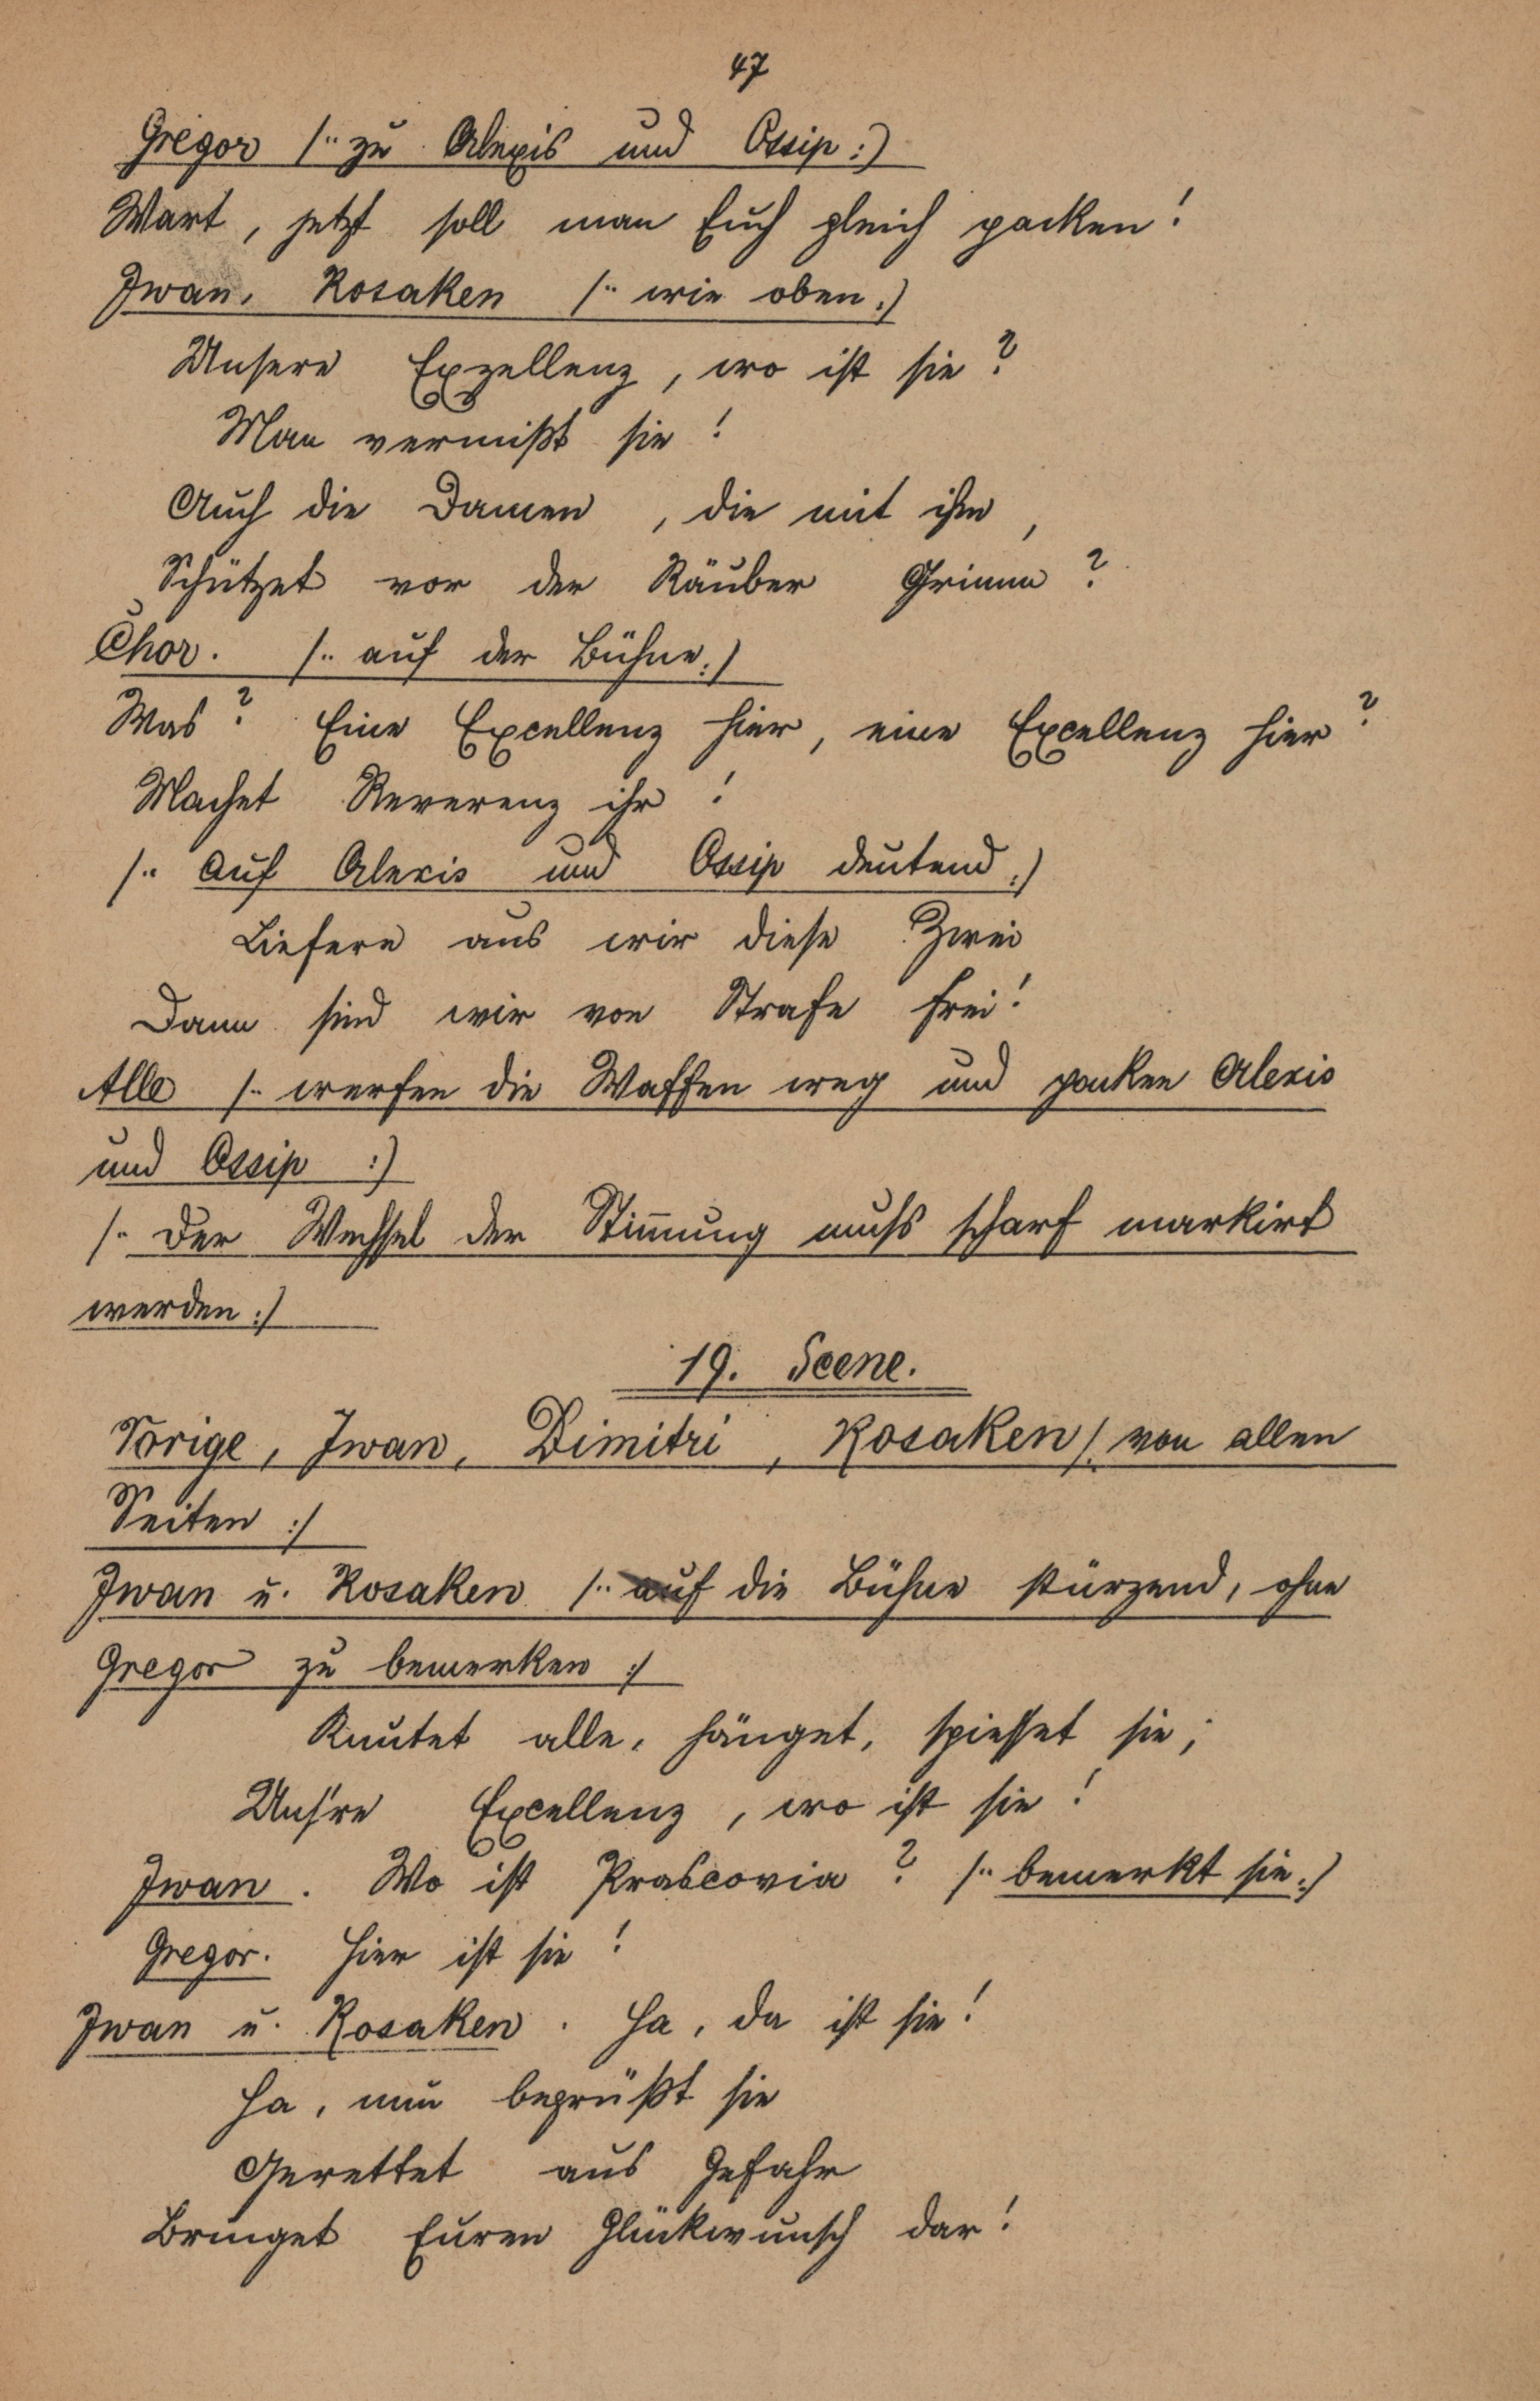 47
Gregor /: zu Alexis und Ossip :)
Wart, jetzt soll man Euch gleich packen!
Iwan, Kosaken /: wie oben :)
Unsere Exzellenz, wo ist sie?
Man vermißt sie!
Auch die Damen, die mit ihr,
Schützet vor der Räuber Grimm?
Chor. /: auf der Bühne :)
Was? Eine Excellenz hier, eine Excellenz hier?
Machet Reverenz ihr!
/: Auf Alexis und Ossip deutend :)
Liefern aus wir diese Zwei
Dann sind wir von Strafe frei!
Alle /: werfen die Waffen weg und packen Alexis
und Ossip :)
/: Der Wechsel der Stimmung muss scharf markirt
werden :/
19. Scene.
Vorige, Iwan, Dimitri, Kosaken /: von allen
Seiten :/
Iwan u. Kosaken /: auf die Bühne stürzend, ohne
Gregor zu bemerken :/
Knutet alle, hänget, spiesset sie;
Uns're Excellenz, wo ist sie!
Iwan. Wo ist Prascovia? /: bemerkt sie :)
Gregor. Hier ist sie!
Iwan u. Kosaken. Ha, da ist sie!
Ha, nun begrüßt sie
Gerettet aus Gefahr
Bringet Euren Glückwunsch dar!